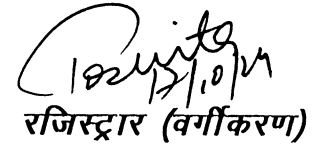 12/10/24
रजिस्ट्रार (वर्गीकरण)